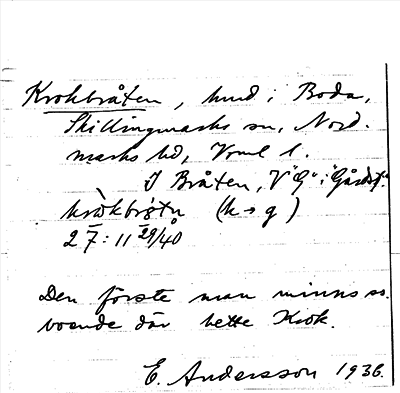 Krokbråten, hmd i Boda,
Skillingmarks sn, Nord-
marks hd, Vrml l.
I Bråten, V "G" i "Gårdsf".
(k→g)
27:11 29/40
Den förste man minns ss.
boende där hette Krok.
E. Andersson 1936.